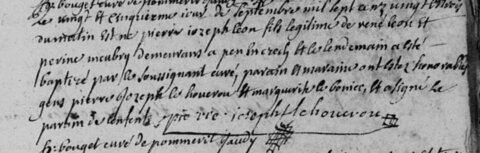 h: bouget curé de pommerit gaudy
le vingt et cinquieme iour de septembre mil sept cent vingt et
du matin est né pierre ioseph leon fils legitime de rené leon et
perine meubry demeurans a pen lendemain a esté
baptizé par le soussignant curé, parain et maraine ont estez honorables
gens pierre ioseph le houerou et marguerite le bonice, et a signé le
parain de lenfent pierre: ioseph le houerou
h: bouget curé de pommerit gaudy